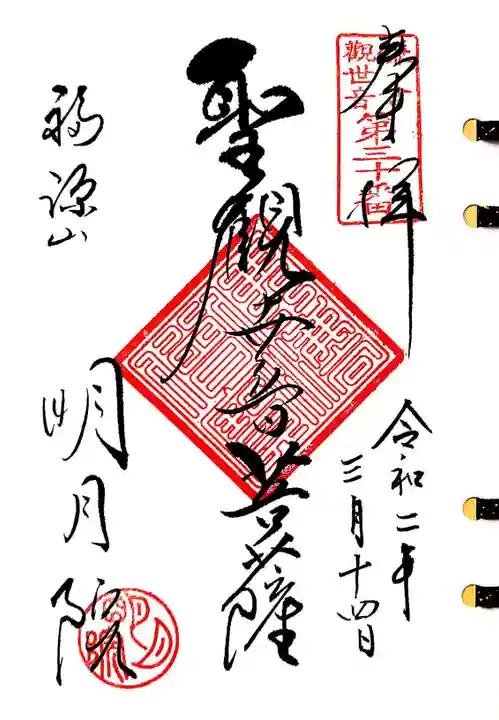 奉拝
觀世音第三十番
令和二年
三月十四日
聖観世音菩薩
福源山
明月院